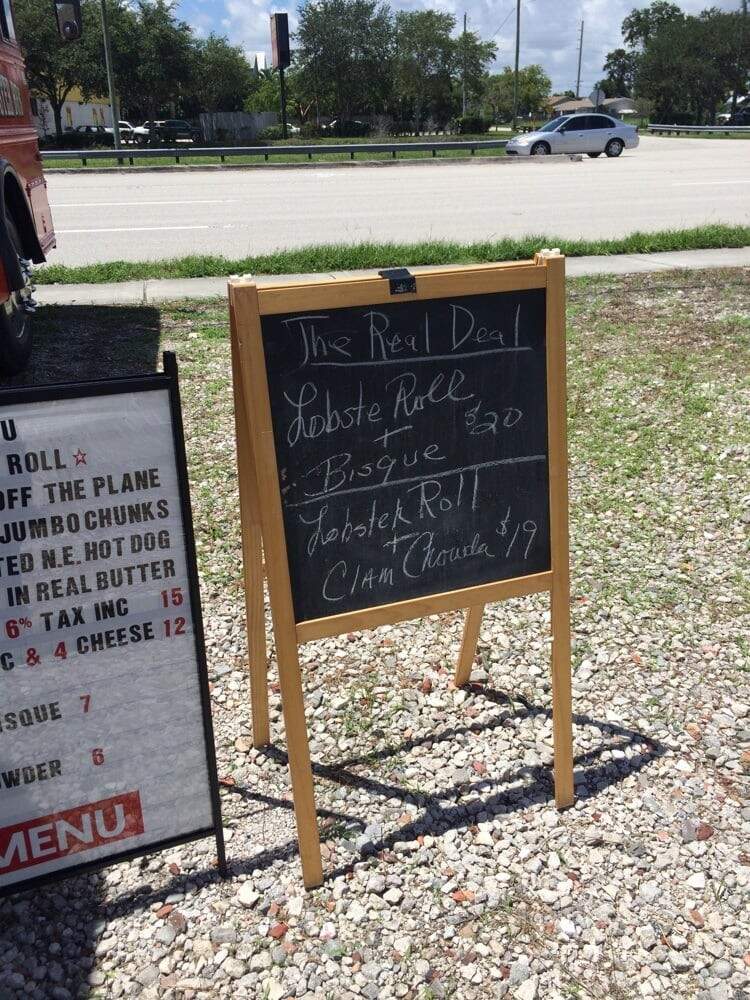 U
ROLL ☆
OFF THE PLANE
JUMBO CHUNKS
TED N.E. HOT DOG
IN REAL BUTTER
6% TAX INC 15
C & 4 CHEESE 12
ISQUE 7
WDER 6
MENU
The Real Deal
Lobste Roll
+ $20
Bisque
Lobster Roll
+
Clam Chowda $19